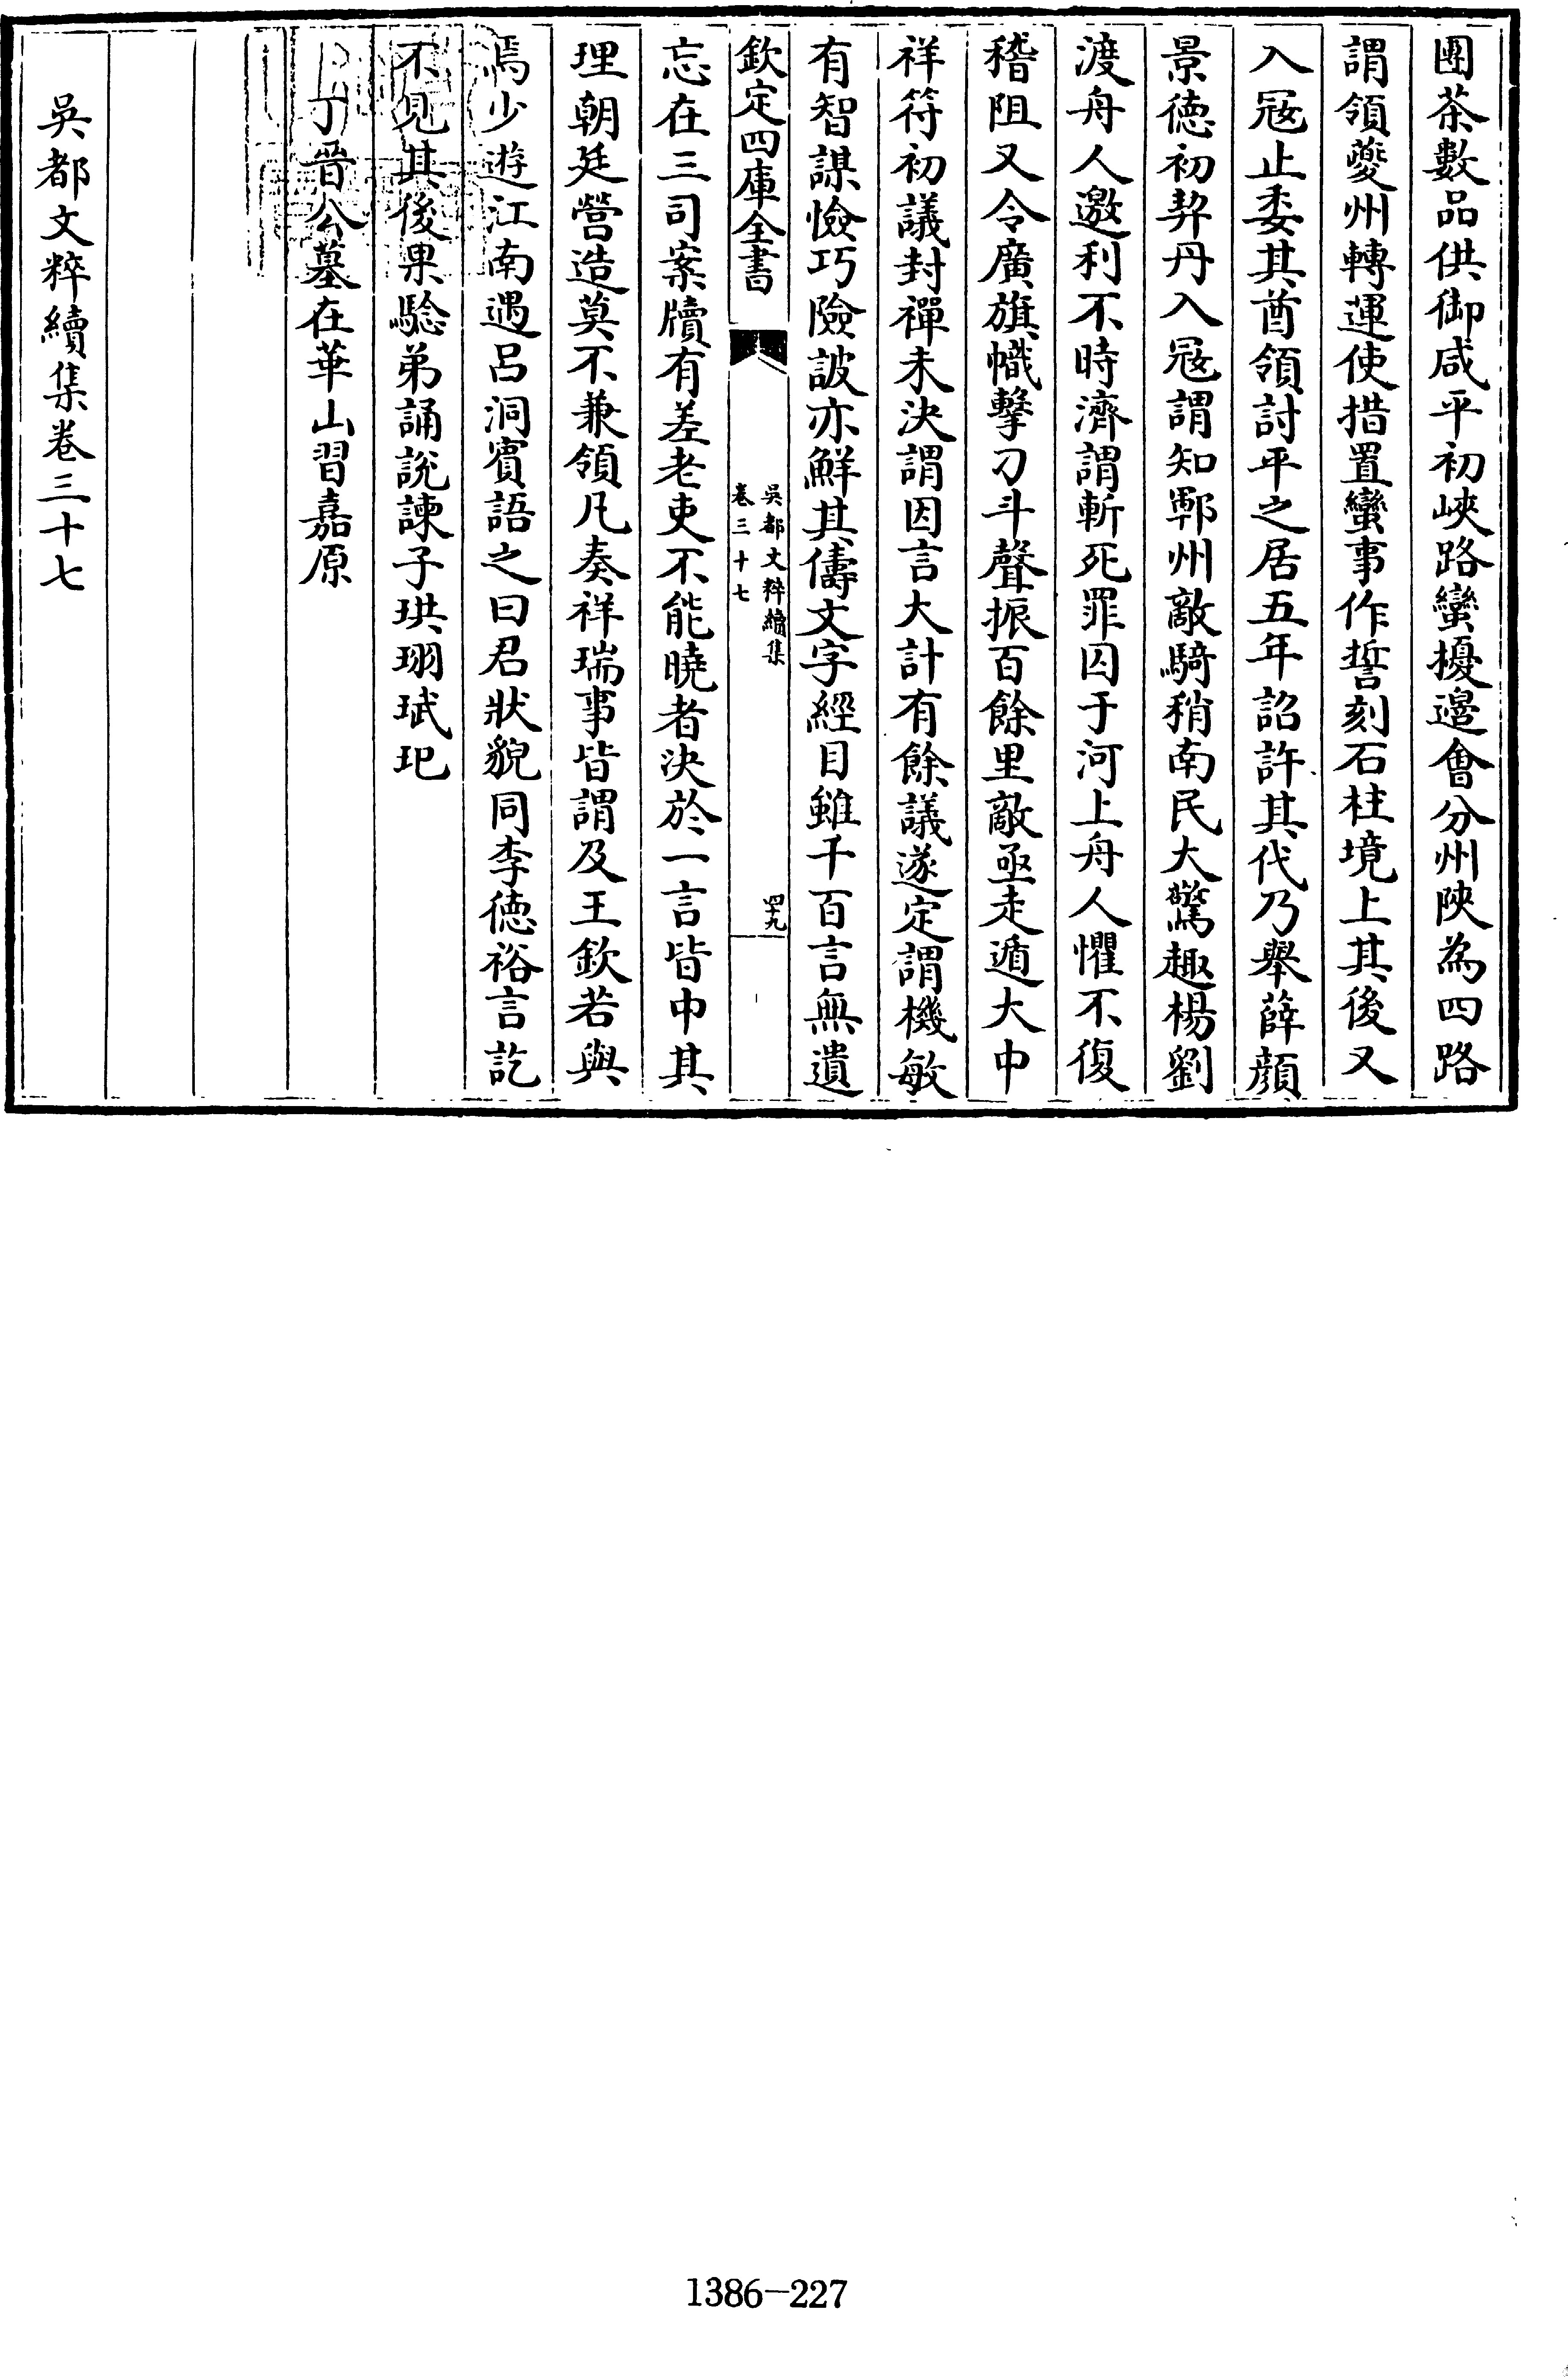 團茶數品供御咸平初峽路蠻擾邉會分州陜為四路
謂領夔州轉運使措置蠻事作誓刻石柱境上其後又
入冦止委其酋領討平之居五年詔許其代乃舉薛顔
景徳初契丹入冦謂知鄆州敵騎稍南民大驚趣楊劉
渡舟人邀利不時濟謂斬死罪囚于河上舟人懼不復
稽阻又令廣旗幟擊刁斗聲振百餘里敵亟走遁大中
祥符初議封禪未決謂因言大計有餘議遂定謂機敏
有智謀憸巧險詖亦鮮其儔文字經目雖千百言無遺
欽定四庫全書
吳都文粹續集
卷三十七
四十九
忘在三司案牘有差老吏不能曉者決於一言皆中其
理朝廷營造莫不兼領凡奏祥瑞事皆謂及王欽若與
焉少遊江南遇呂洞賓語之曰君狀貌同李徳裕言訖
不見其後果驗弟誦說諫子珙珝珷玘
丁晉公墓在華山習嘉原
吳都文粹續集卷三十七
1386-227